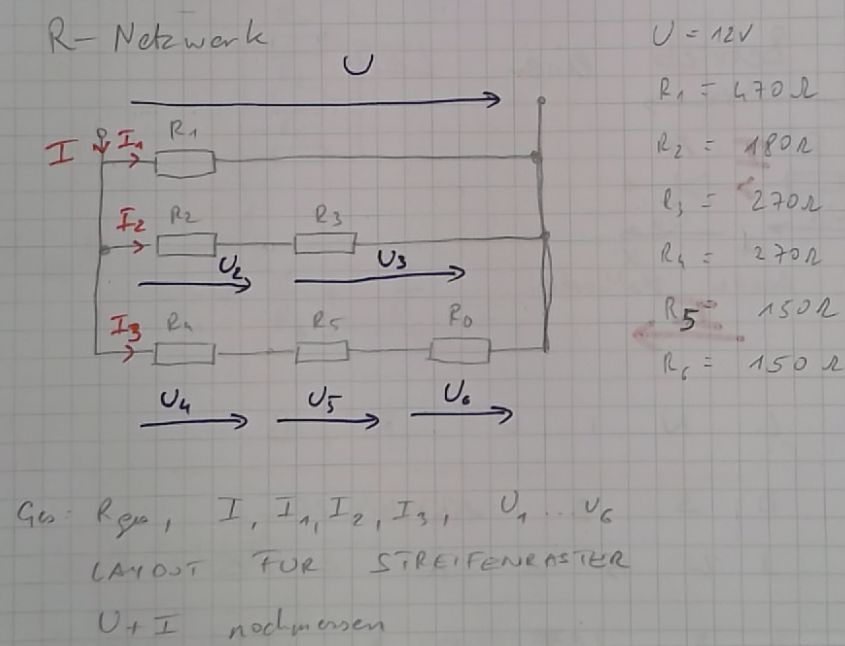 R- Netzwerk
U
I
I1
R1
I2
R2
R3
U2
U3
I3
R4
R5
R6
U4
U5
U6
U = 12V
R1 = 470Ω
R2 = 180Ω
R3 = 270Ω
R4 = 270Ω
R5 150Ω
R6 = 150Ω
Ges: Rges, I, I1, I2, I3, U1 .. U6
LAYOUT FUR STREIFENRASTER
U+I nachmessen